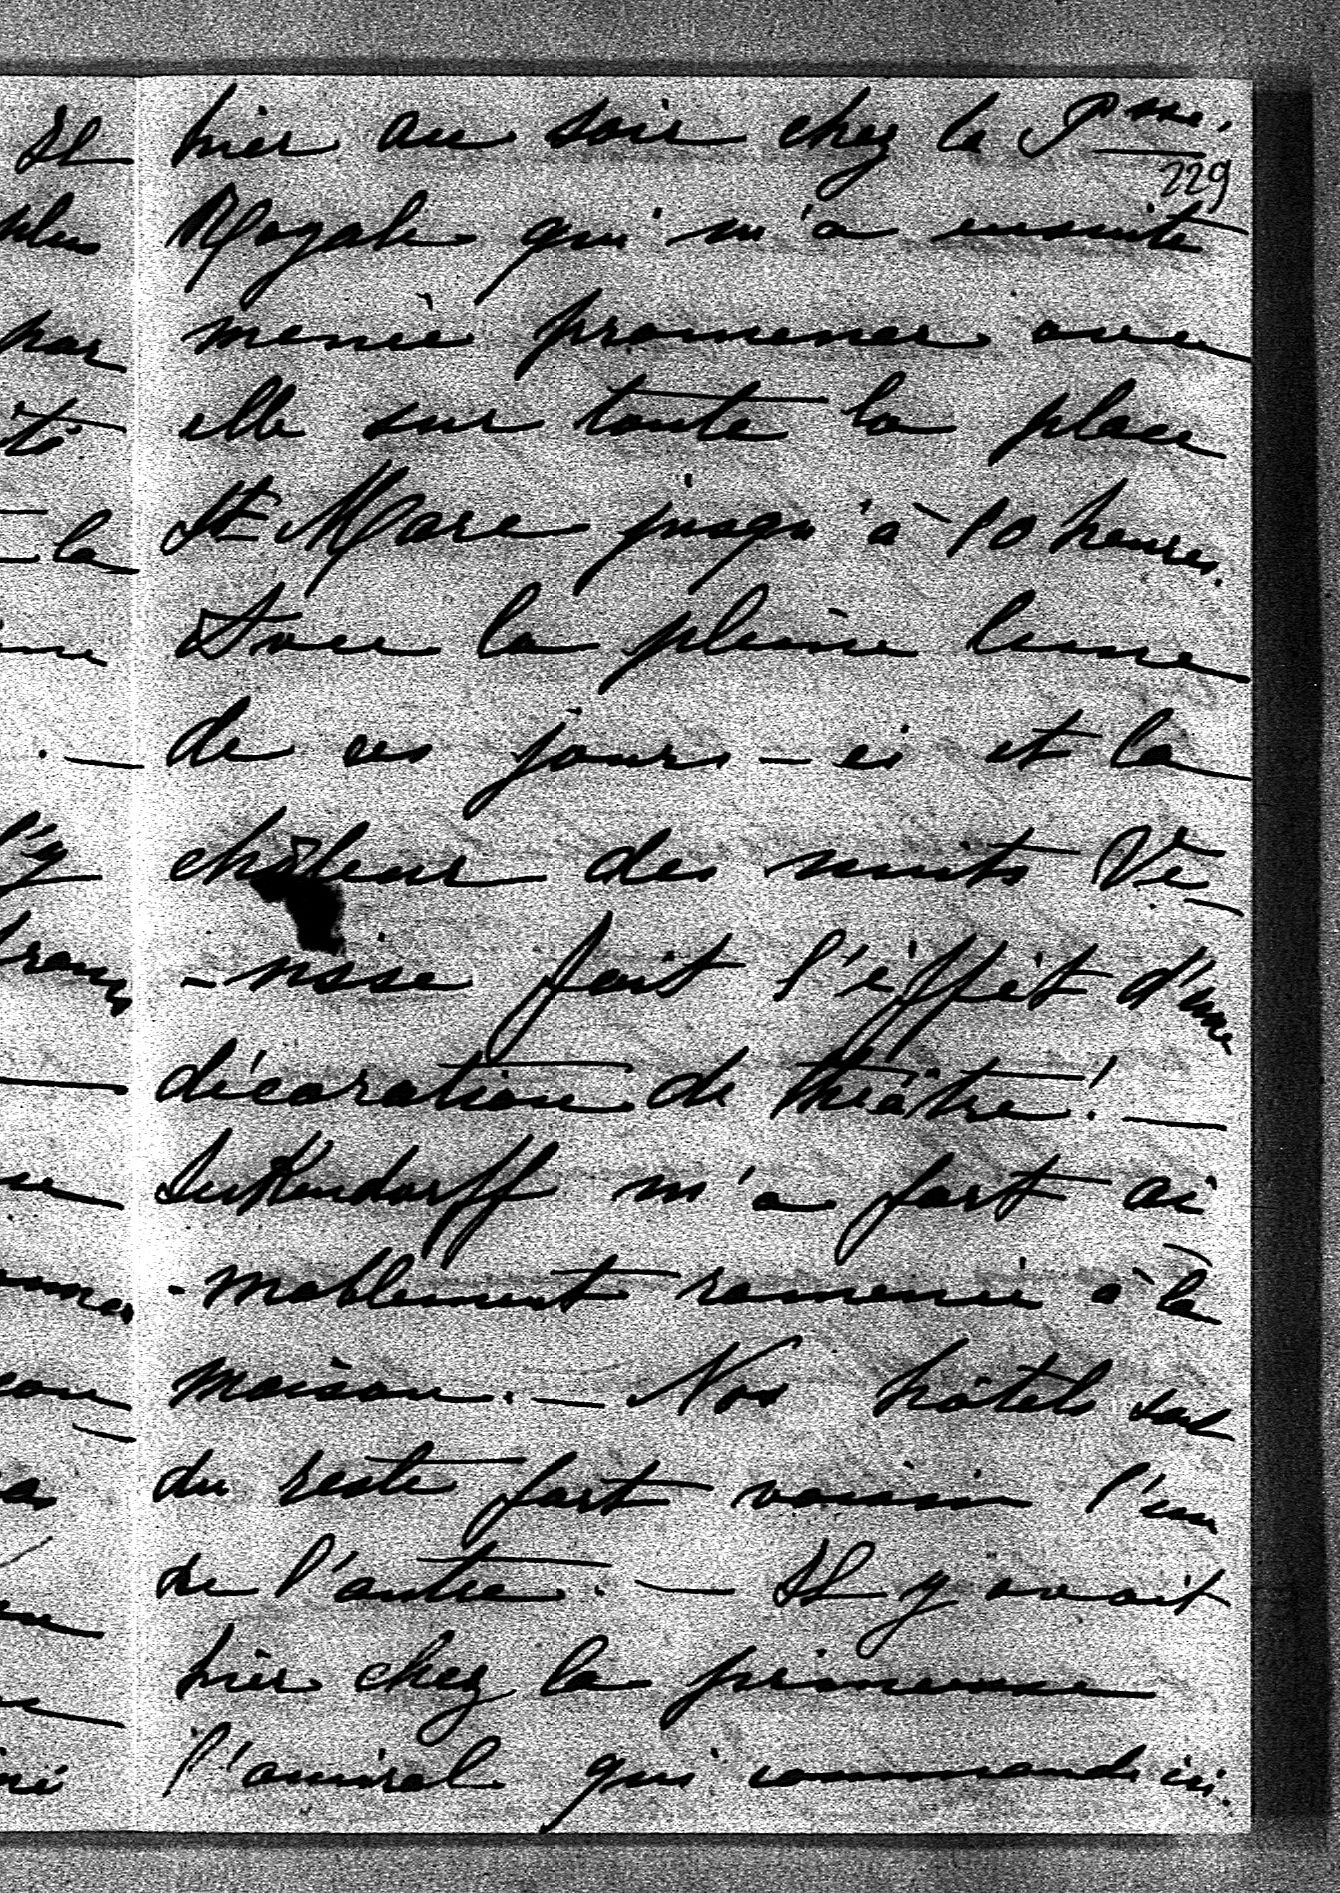 hier au soir chez la Pme.
229
Royale qui m'a ensuite
menée promener avec
elle sur toute la place
St Marc jusqu'à 10 heures.
Avec la pleine lune
de ces jours-ci et la
chaleur des nuits Vé-
-nise fait l'éffèt d'une
décoration de théâtre! —
m'a fort ai
-mablement ramenée à la
maison. — Nos hôtels sont
du reste fort voisin l'un
de l'autre. — Il y avait
hier chez la princesse
l'amiral qui commande ici.